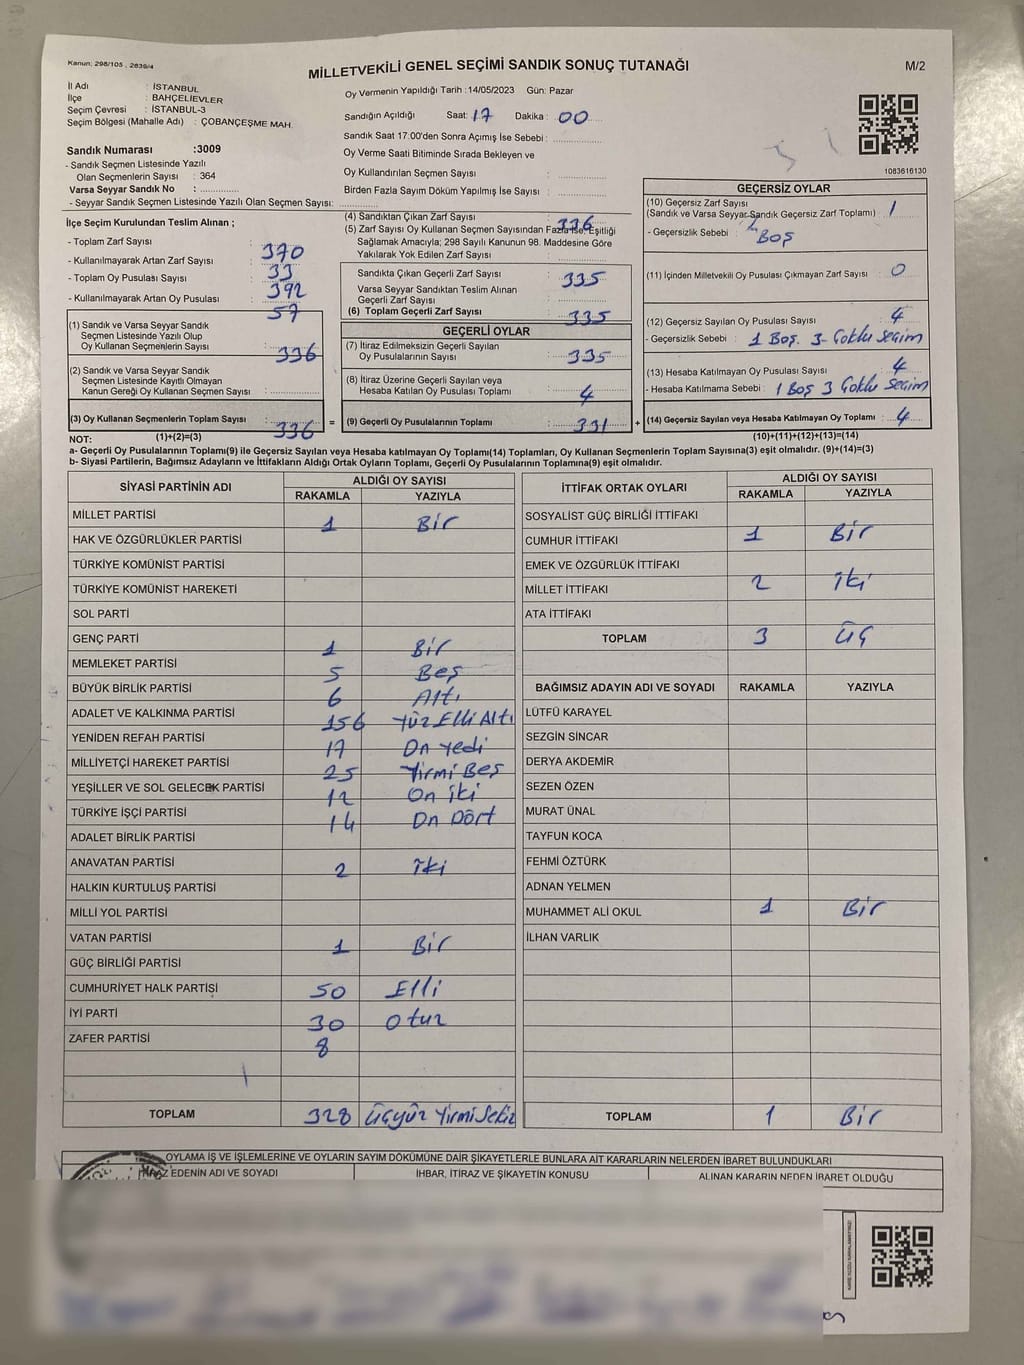 Kanun: 298/105 , 2839/4
MİLLETVEKİLİ GENEL SEÇİMİ SANDIK SONUÇ TUTANAĞI
M/2
İl Adı : İSTANBUL
İlçe : BAHÇELİEVLER
Seçim Çevresi : İSTANBUL-3
Seçim Bölgesi (Mahalle Adı) : ÇOBANÇEŞME MAH.
Sandık Numarası :3009
- Sandık Seçmen Listesinde Yazılı
Olan Seçmenlerin Sayısı : 364
Varsa Seyyar Sandık No :
- Seyyar Sandık Seçmen Listesinde Yazılı Olan Seçmen Sayısı:
Oy Vermenin Yapıldığı Tarih :14/05/2023 Gün: Pazar
Sandığın Açıldığı Saat: 17 Dakika : 00
Sandık Saat 17:00'den Sonra Açımış İse Sebebi :
Oy Verme Saati Bitiminde Sırada Bekleyen ve
Oy Kullandırılan Seçmen Sayısı :
Birden Fazla Sayım Döküm Yapılmış İse Sayısı :
1083616130
İlçe Seçim Kurulundan Teslim Alınan ;
- Toplam Zarf Sayısı : 370
- Kullanılmayarak Artan Zarf Sayısı : 33
- Toplam Oy Pusulası Sayısı : 392
- Kullanılmayarak Artan Oy Pusulası : 57
(1) Sandık ve Varsa Seyyar Sandık
Seçmen Listesinde Yazılı Olup
Oy Kullanan Seçmenlerin Sayısı : 336
(2) Sandık ve Varsa Seyyar Sandık
Seçmen Listesinde Kayıtlı Olmayan
Kanun Gereği Oy Kullanan Seçmen Sayısı :
(3) Oy Kullanan Seçmenlerin Toplam Sayısı : 336
(4) Sandıktan Çıkan Zarf Sayısı : 336
(5) Zarf Sayısı Oy Kullanan Seçmen Sayısından Fazla ise, Eşitliği
Sağlamak Amacıyla; 298 Sayılı Kanunun 98. Maddesine Göre
Yakılarak Yok Edilen Zarf Sayısı :
Sandıkta Çıkan Geçerli Zarf Sayısı : 335
Varsa Seyyar Sandıktan Teslim Alınan
Geçerli Zarf Sayısı :
(6) Toplam Geçerli Zarf Sayısı : 335
GEÇERLİ OYLAR
(7) İtiraz Edilmeksizin Geçerli Sayılan
Oy Pusulalarının Sayısı : 335
(8) İtiraz Üzerine Geçerli Sayılan veya
Hesaba Katılan Oy Pusulası Toplamı : 4
= (9) Geçerli Oy Pusulalarının Toplamı : 331
GEÇERSİZ OYLAR
(10) Geçersiz Zarf Sayısı
(Sandık ve Varsa Seyyar Sandık Geçersiz Zarf Toplamı) : 1
- Geçersizlik Sebebi : Boş
(11) İçinden Milletvekili Oy Pusulası Çıkmayan Zarf Sayısı : 0
(12) Geçersiz Sayılan Oy Pusulası Sayısı : 4
- Geçersizlik Sebebi : 1 Boş. 3- Çoklu Seçim
(13) Hesaba Katılmayan Oy Pusulası Sayısı : 4
- Hesaba Katılmama Sebebi : 1 Boş 3 Çoklu Seçim
+ (14) Geçersiz Sayılan veya Hesaba Katılmayan Oy Toplamı : 4
NOT: (1)+(2)=(3)
(10)+(11)+(12)+(13)=(14)
a- Geçerli Oy Pusulalarının Toplamı(9) ile Geçersiz Sayılan veya Hesaba katılmayan Oy Toplamı(14) Toplamları, Oy Kullanan Seçmenlerin Toplam Sayısına(3) eşit olmalıdır. (9)+(14)=(3)
b- Siyasi Partilerin, Bağımsız Adayların ve İttifakların Aldığı Ortak Oyların Toplamı, Geçerli Oy Pusulalarının Toplamına(9) eşit olmalıdır.
SİYASİ PARTİNİN ADI ALDIĞI OY SAYISI
RAKAMLA YAZIYLA
MİLLET PARTİSİ 1 Bir
HAK VE ÖZGÜRLÜKLER PARTİSİ
TÜRKİYE KOMÜNİST PARTİSİ
TÜRKİYE KOMÜNİST HAREKETİ
SOL PARTİ
GENÇ PARTİ 1 Bir
MEMLEKET PARTİSİ 5 Beş
BÜYÜK BİRLİK PARTİSİ 6 Altı
ADALET VE KALKINMA PARTİSİ 156 Yüz Elli Altı
YENİDEN REFAH PARTİSİ 17 On Yedi
MİLLİYETÇİ HAREKET PARTİSİ 25 Yirmi Beş
YEŞİLLER VE SOL GELECEK PARTİSİ 12 On iki
TÜRKİYE İŞÇİ PARTİSİ 14 On Dört
ADALET BİRLİK PARTİSİ
ANAVATAN PARTİSİ 2 İki
HALKIN KURTULUŞ PARTİSİ
MİLLİ YOL PARTİSİ
VATAN PARTİSİ 1 Bir
GÜÇ BİRLİĞİ PARTİSİ
CUMHURİYET HALK PARTİSİ 50 Elli
İYİ PARTİ 30 Otuz
ZAFER PARTİSİ 8
TOPLAM 328 Üçyüz Yirmi Sekiz
İTTİFAK ORTAK OYLARI ALDIĞI OY SAYISI
RAKAMLA YAZIYLA
SOSYALİST GÜÇ BİRLİĞİ İTTİFAKI
CUMHUR İTTİFAKI 1 Bir
EMEK VE ÖZGÜRLÜK İTTİFAKI
MİLLET İTTİFAKI 2 İki
ATA İTTİFAKI
TOPLAM 3 Üç
BAĞIMSIZ ADAYIN ADI VE SOYADI RAKAMLA YAZIYLA
LÜTFÜ KARAYEL
SEZGİN SİNCAR
DERYA AKDEMİR
SEZEN ÖZEN
MURAT ÜNAL
TAYFUN KOCA
FEHMİ ÖZTÜRK
ADNAN YELMEN
MUHAMMET ALİ OKUL 1 Bir
İLHAN VARLIK
TOPLAM 1 Bir
OYLAMA İŞ VE İŞLEMLERİNE VE OYLARIN SAYIM DÖKÜMÜNE DAİR ŞİKAYETLERLE BUNLARA AİT KARARLARIN NELERDEN İBARET BULUNDUKLARI
İTİRAZ EDENİN ADI VE SOYADI İHBAR, İTİRAZ VE ŞİKAYETİN KONUSU ALINAN KARARIN NEDEN İBARET OLDUĞU